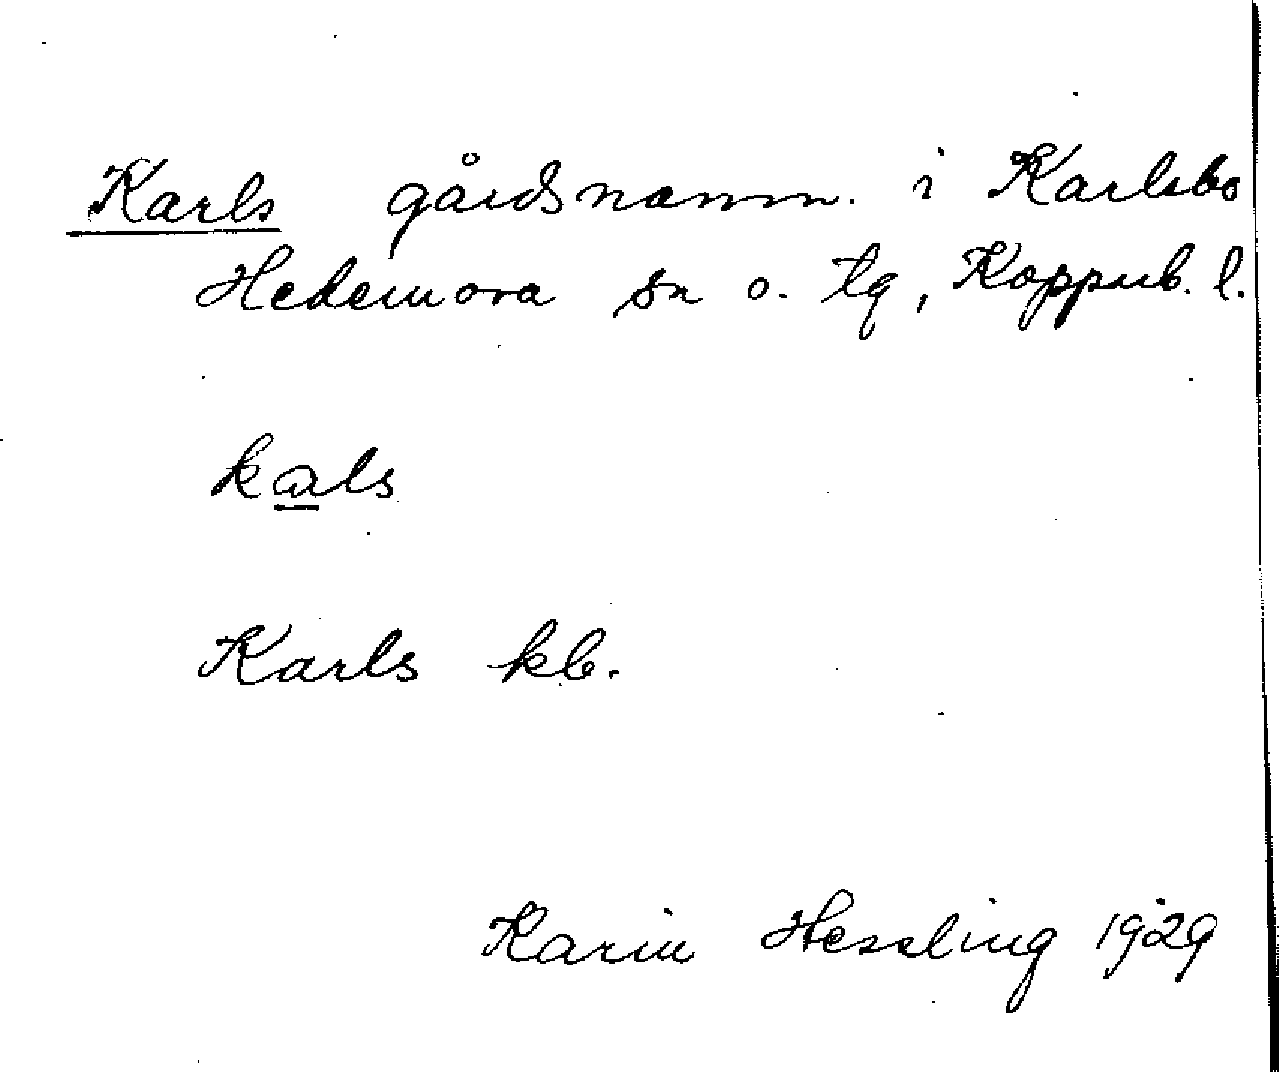 Karls gårdsnamn i Karlsbo
Hedemora sn o. tg, Kopparb. l.
kals
Karls kb.
Karin Hessling 1929